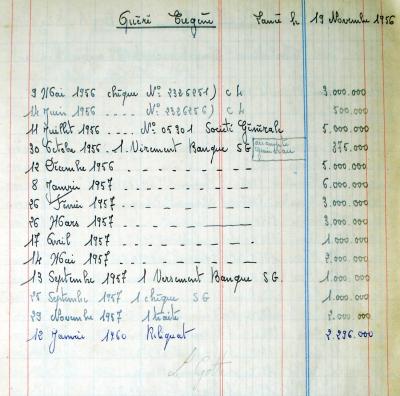 Guéré Eugène Lancé le 19 Novembre 1956
9 Mai 1956 chèque N° 2326251) C L 3.000.000
14 Juin 1956 .... N° 2326256) C L 500.000
11 Juillet 1956 .... N° 05301 Société Générale 5.000.000
30 Octobre 1956 . 1 Virement Banque SG 375.000
12 Décembre 1956 5.000.000
8 Janvier 1957 6.000.000
26 Février 1957 3.000.000
26 Mars 1957 3.000.000
17 Avril 1957 1.000.000
14 Mai 1957 2.000.000
13 Septembre 1957 1 Versement Banque SG. 1.000.000
25 Septembre 1957 1 chèque SG 1.000.000
29 Novembre 1957 1 traite 2.000.000
12 Janvier 1960 Reliquat 2.296.000